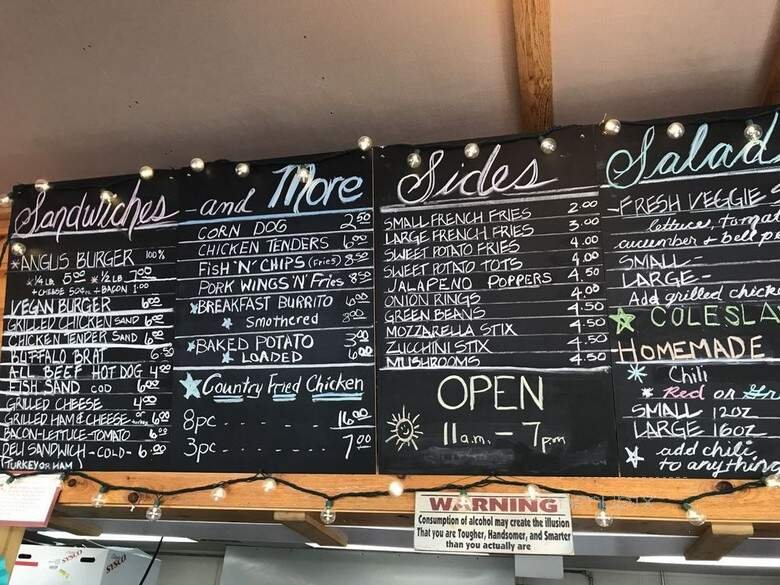 Sandwiches
*ANGUS BURGER 100%
*1/4 LB. 5.00 *1/2 LB. 7.00
+CHEESE 50¢ + BACON 1.00
VEGAN BURGER 6.00
GRILLED CHICKEN SAND 6.00
CHICKEN TENDER SAND 6.00
BUFFALO BRAT 6.50
ALL BEEF HOT DOG 4.00
FISH SAND COD 6.00
GRILLED CHEESE 4.00
GRILLED HAM & CHEESE or turkey 6.00
BACON-LETTUCE-TOMATO 6.00
DELI SANDWICH -COLD- 6.00
TURKEY OR HAM
-and More
CORN DOG 2.50
CHICKEN TENDERS 6.00
FISH "N" CHIPS (Fries) 8.50
PORK WINGS 'N' Fries 8.50
*BREAKFAST BURRITO 6.00
Smothered 8.00
*BAKED POTATO 3.00
LOADED 6.00
Country Fried Chicken
8pc. - - - - - - 16.00
3pc. - - - - - - 7.00
Sides
SMALL FRENCH FRIES 2.00
LARGE FRENCH FRIES 3.00
SWEET POTATO FRIES 4.00
SWEET POTATO TOTS 4.00
JALAPENO POPPERS 4.50
ONION RINGS 4.00
GREEN BEANS 4.50
MOZZARELLA STIX 4.50
ZUCCHINI STIX 4.50
MUSHROOMS 4.50
OPEN
11am. - 7pm
Salad
-FRESH VEGGIE-
lettuce, tomat
cucumber + bell pe
SMALL-
LARGE-
Add grilled chicke
COLESLA
HOMEMADE
* Chili
* Red or Gr
SMALL 12OZ
LARGE 16OZ
add chili
to anything
WARNING
Consumption of alcohol may create the illusion
That you are Tougher, Handsomer, and Smarter
than you actually are
SYSCO
SYSCO